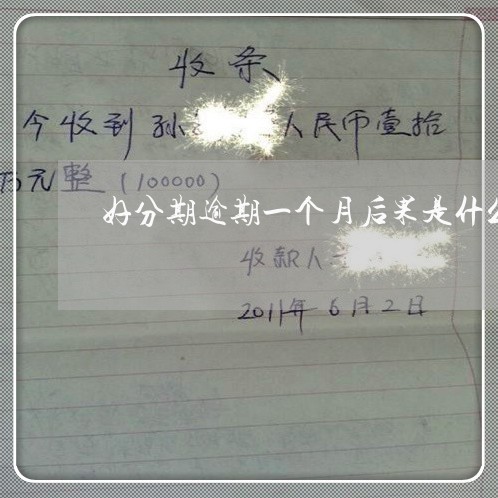 收条
今收到孙 人民币壹拾
万元整（100000）
好分期逾期一个月后果是什么
收款人
2011年6月2日